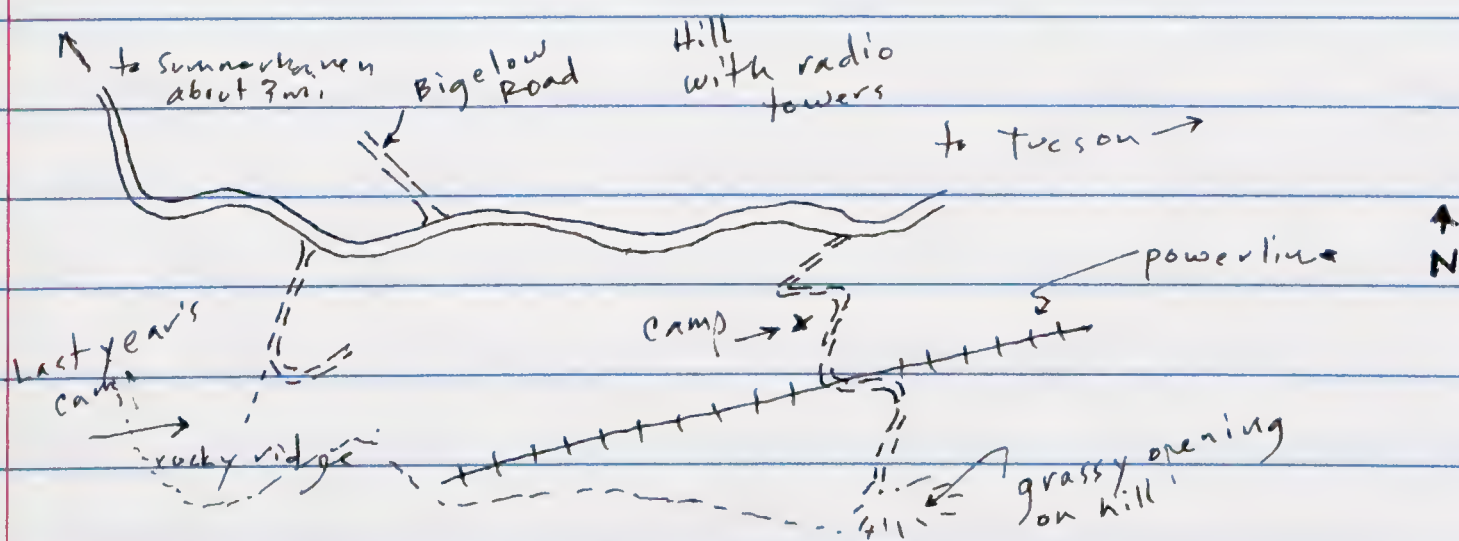 to Summerhaven
about 3 mi.
Bigelow
Road
Hill
with radio
towers
to Tucson
N
powerline
camp
x
Last year's
camp
rocky ridge
grassy opening
on hill